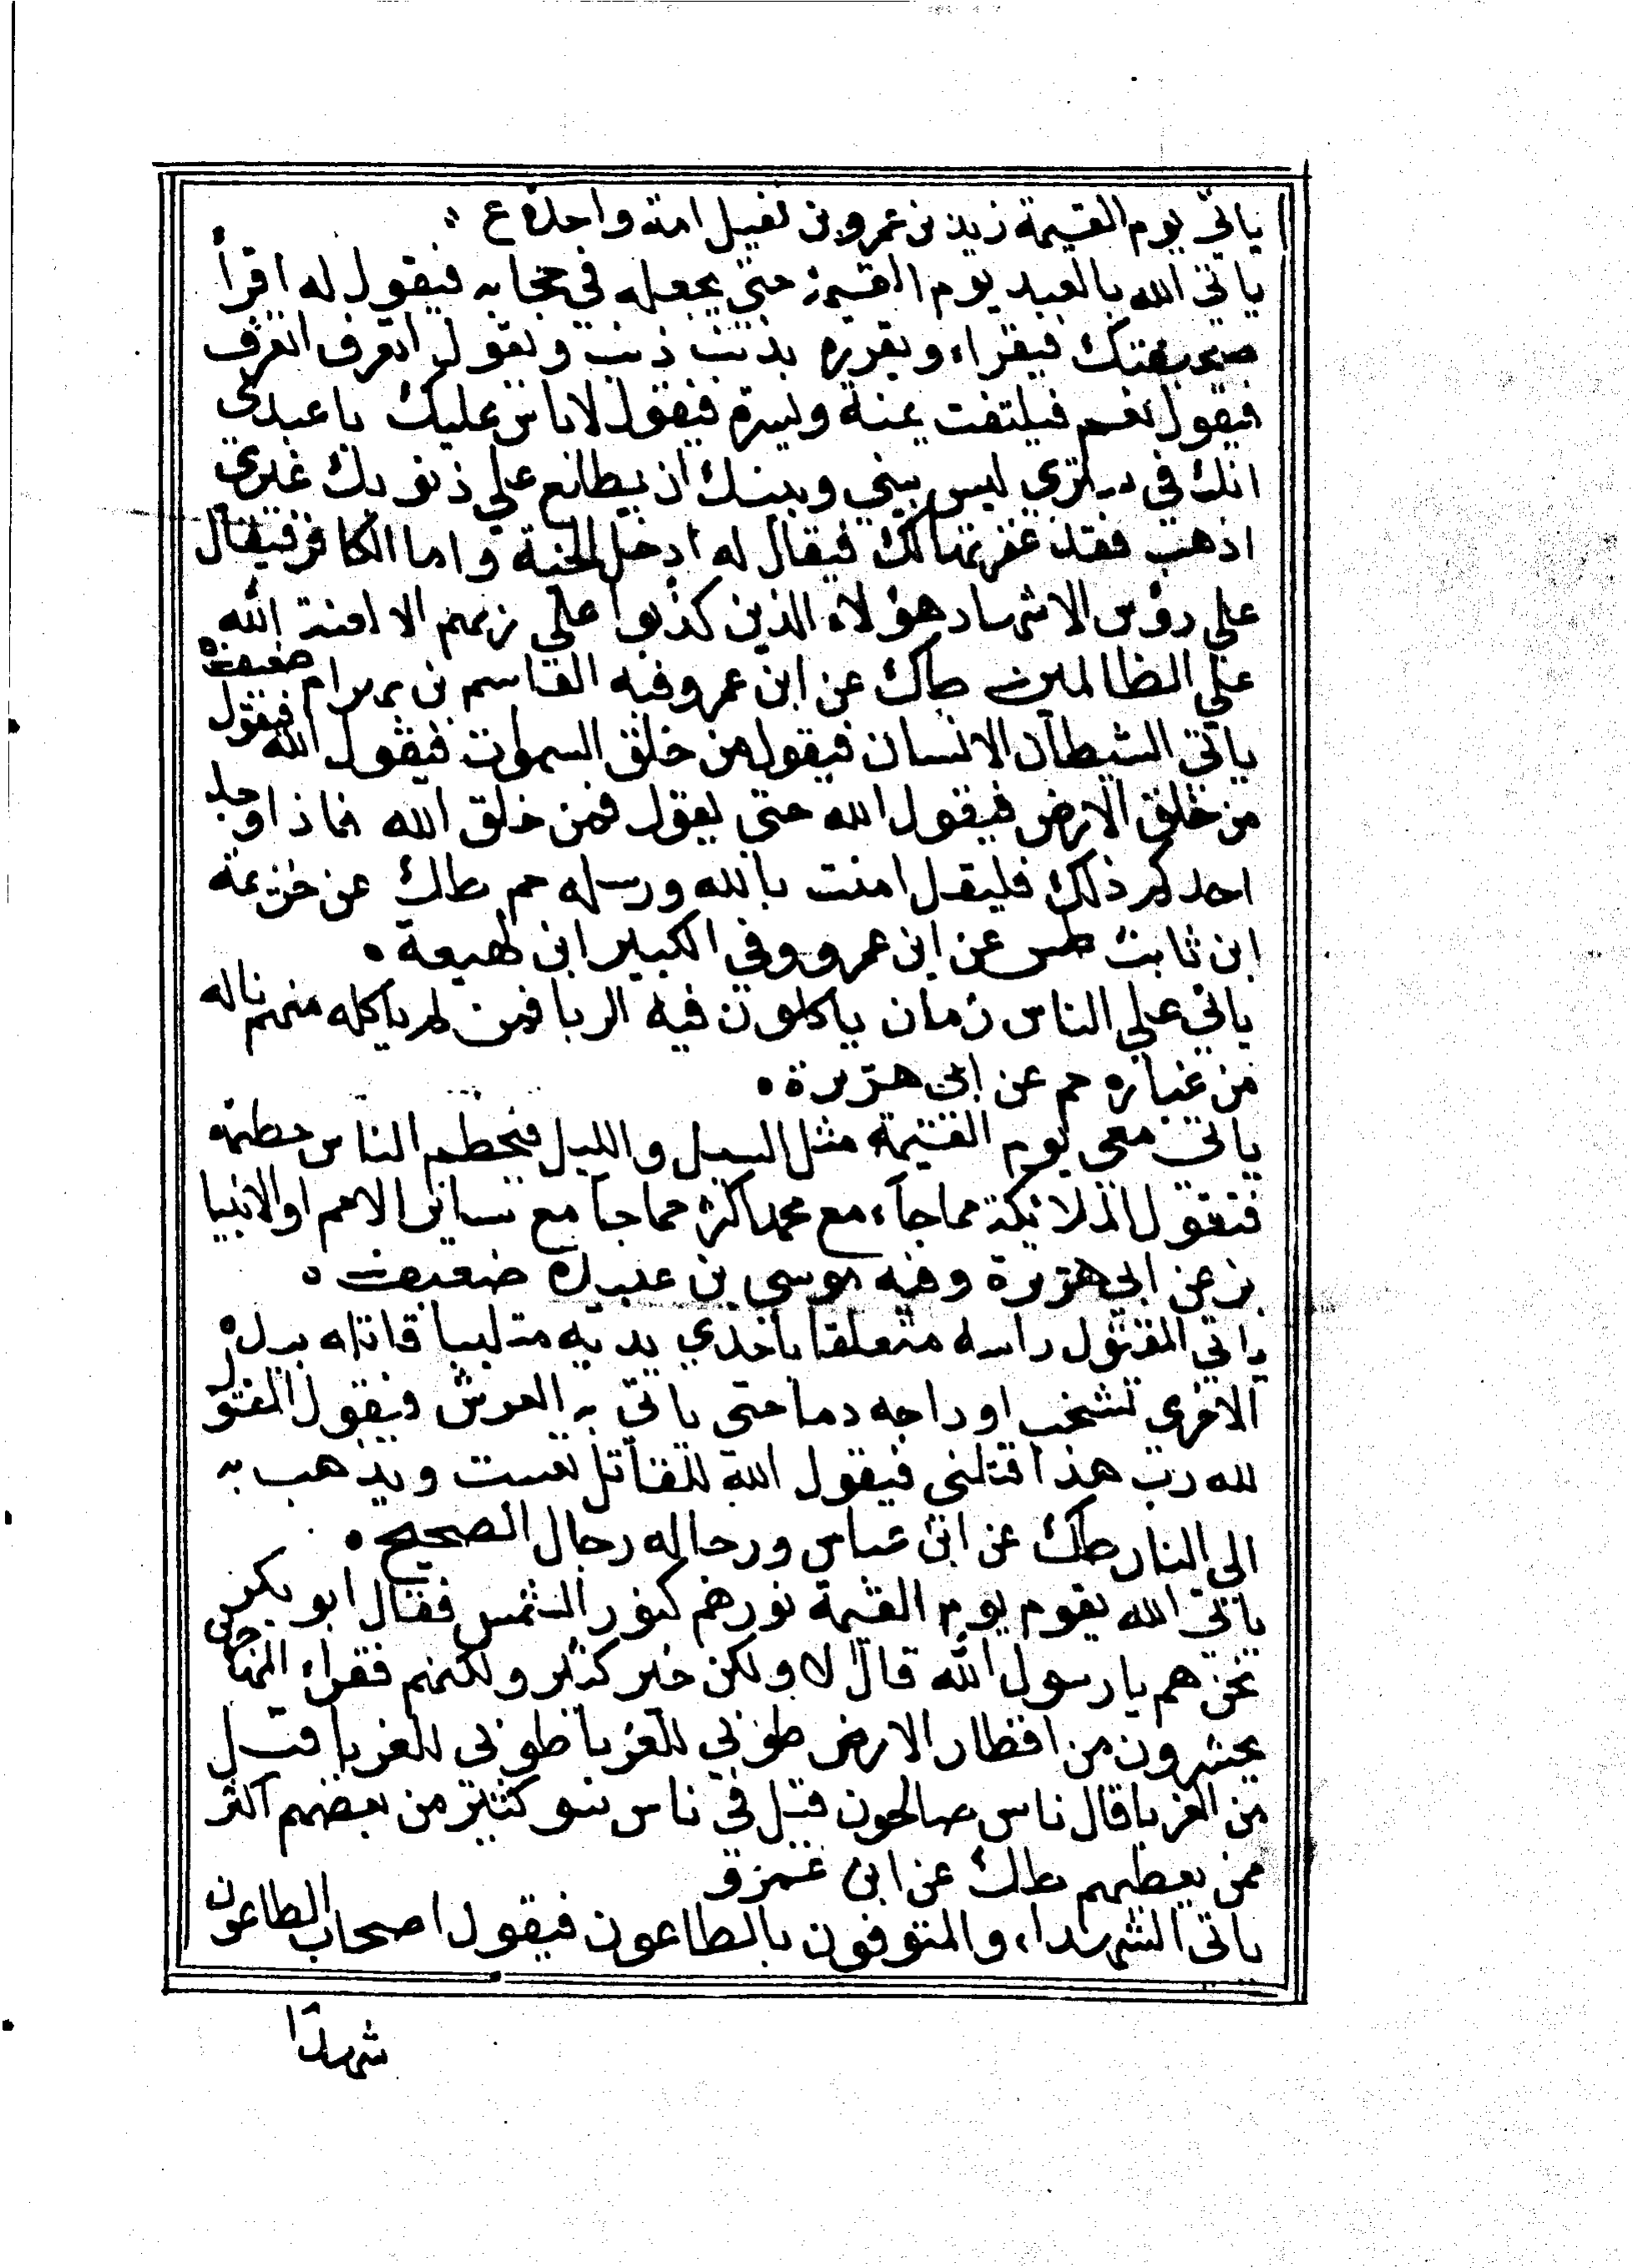 ياتي يوم القيمة زيد بن عمرو بن نفيل امة واحدة ع
ياتي الله بالعبد يوم القيمة حتى يجعله في حجابه فيقول له اقرأ
صحيفتك فيقراء ويقرره بذنب ذنب ويقول اتعرف اتعرف
فيقول نعم فيلتفت يمنة ويسرة فيقول لا باس عليك يا عبدي
انك في ستري ليس بيني وبينك ان يطلع علي ذنوبك غيري
اذهب فقد غفرتها لك فيقال له ادخل الجنة واما الكافر فيقال
علي رؤس الاشهاد هؤلاء الذين كذبوا علي ربهم الا لعنة الله
علي الظالمين طك عن ابن عمر وفيه القاسم بن بهرام ضعيف
ياتي الشيطان الانسان فيقول من خلق السموات فيقول الله فيقول
من خلق الارض فيقول الله حتى يقول فمن خلق الله فاذا وجد
احدكم ذلك فليقل امنت بالله ورسله حم طك عن خزيمة
ابن ثابت طس عن ابن عمرو وفي الكبير ابن لهيعة
ياتي علي الناس زمان ياكلون فيه الربا فمن لم ياكله منهم ناله
من غباره حم عن ابي هريرة
ياتي معي يوم القيمة مثل السيل والليل فتحطم الناس حطمة
فتقول الملائكة مما جاء مع محمد اكثر مما جا مع ساير الامم او الانبيا
بز عن ابي هريرة وفيه موسي بن عبيدة ضعيف
ياتي المقتول راسه متعلقا باحدي يديه متلببا قاتله بيده
الاخري تشخب اوداجه دما حتى ياتي به العرش فيقول المقتول
لله رب هذا قتلني فيقول الله للقاتل تعست ويذهب به
الي النار طك عن ابن عباس ورجاله رجال الصحيح
ياتي الله بقوم يوم القيمة نورهم كنور الشمس فقال ابو بكر
نحن هم يا رسول الله قال لا ولكن خير كثير ولكنهم فقراء المهاجرين
يحشرون من اقطار الارض طوبي للغربا طوبي للغربا قيل
من الغربا قال ناس صالحون قيل في ناس سو كثير من بعصهم اكثر
ممن يعطيهم طك عن ابن عمرو
ياتي الشهداء والمتوفون بالطاعون فيقول اصحاب الطاعون
شهدا